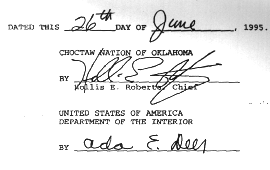 DATED THIS 26th DAY OF June, 1995.
CHOCTAW NATION OF OKLAHOMA
BY Hollis E. Roberts
Hollis E. Roberts, Chief
UNITED STATES OF AMERICA
DEPARTMENT OF THE INTERIOR
BY Ada E. Deer